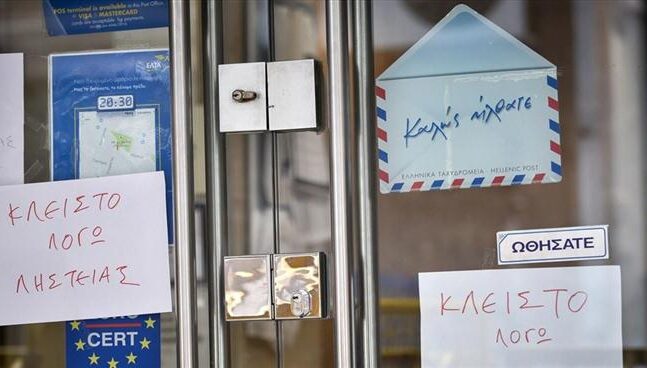 POS terminal is available in
VISA MASTERCARD
20:30
ΕΛΤΑ
ΚΛΕΙΣΤΟ
ΛΟΓΩ
ΛΗΣΤΕΙΑΣ
CERT
Καλώς ήλθατε
ΕΛΛΗΝΙΚΑ ΤΑΧΥΔΡΟΜΕΙΑ - HELLENIC POST
ΩΘΗΣΑΤΕ
ΚΛΕΙΣΤΟ
ΛΟΓΩ